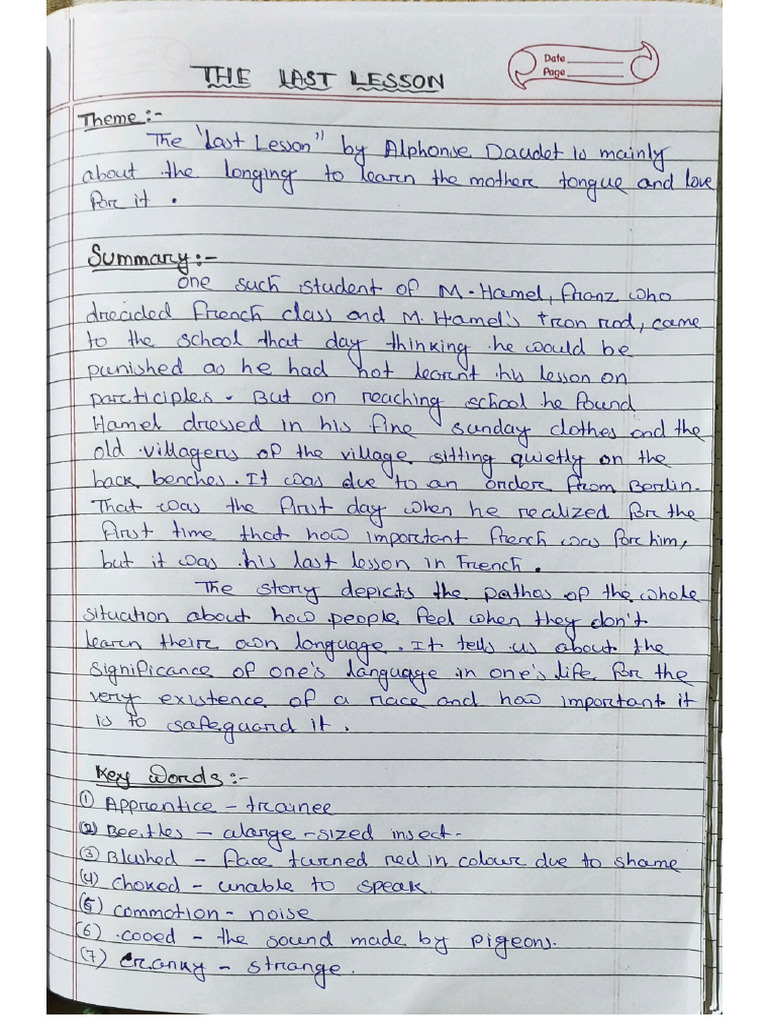 THE LAST LESSON
Date
Page
Theme :-
The "Last Lesson" by Alphonse Daudet is mainly
about the longing to learn the mother tongue and love
for it .
Summary :-
One such student of M. Hamel, Franz who
dreaided french class and M. Hamel's iron rod, came
to the school that day thinking he would be
punished as he had not learnt his lesson on
participles. But on reaching school he found
Hamel dressed in his fine sunday clothes and the
old villagers of the village sitting quietly on the
back benches. It was due to an order from Berlin.
That was the first day when he realized for the
first time that how important french was for him,
but it was his last lesson in French.
The story depicts the pathos of the whole
situation about how people feel when they don't
learn their own language. It tells us about the
significance of one's language in one's life for the
very existence of a race and how important it
is to safeguard it.
Key Words :-
(1) Apprentice - trainee
(2) Beetles - a large-sized insect.
(3) Blushed - face turned red in colour due to shame
(4) Choked - unable to speak.
(5) Commotion - noise
(6) cooed - the sound made by pigeons.
(7) Cranky - strange.